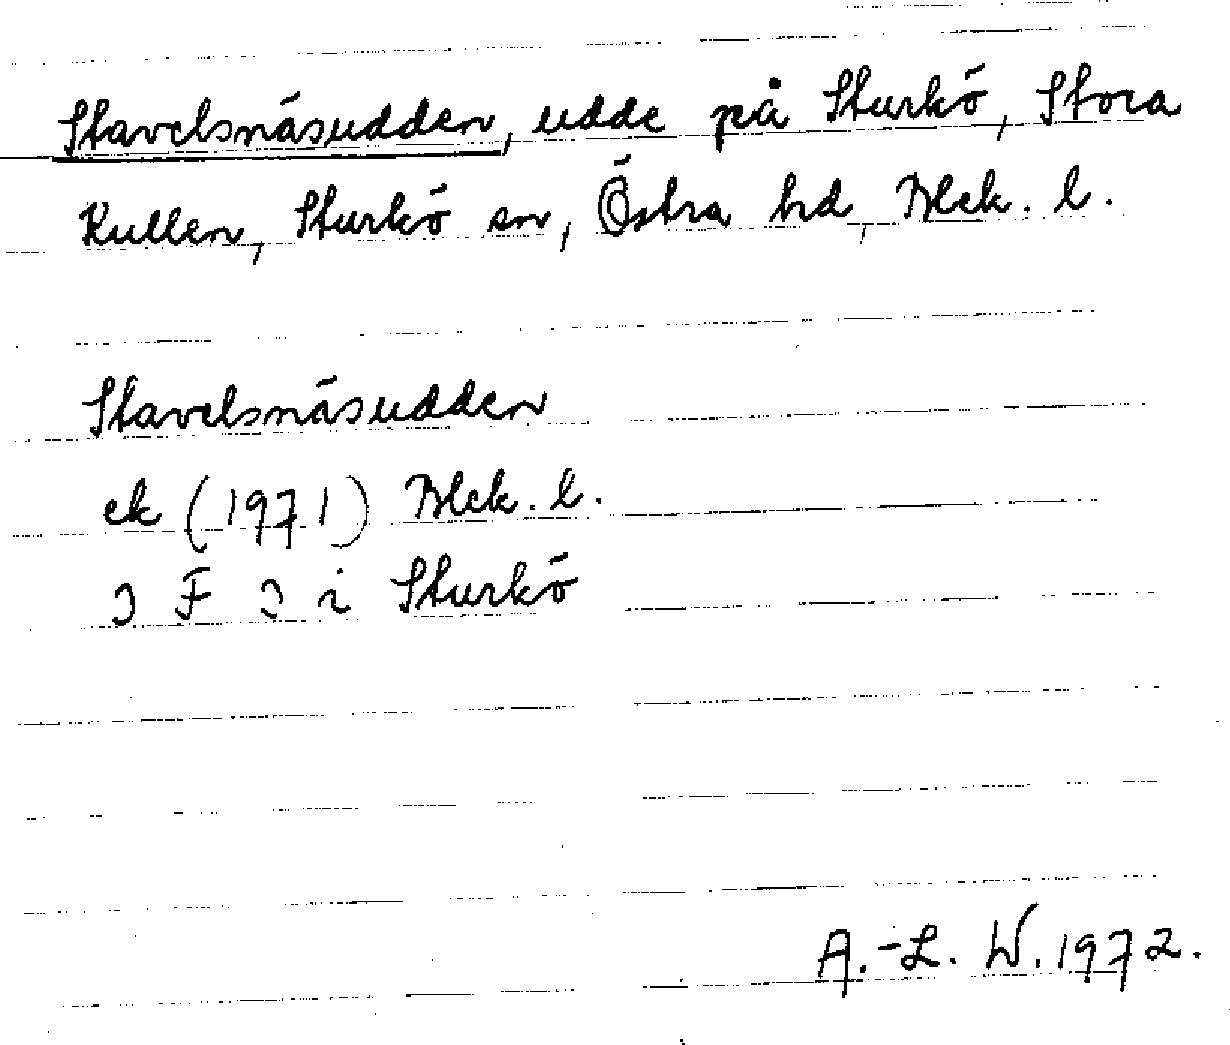 Stavelsnäsudden, udde på Sturkö, Stora
Kullen, Sturkö sn, Östra hd, Blek. l.
Stavelsnäsudden
ek (1971) Blek. l.
3 F 3 i Sturkö
A.-L. W. 1972.